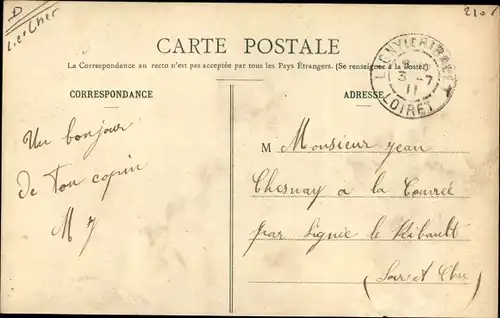 D
L. et Cher
CARTE POSTALE
La Correspondance au recto n'est pas acceptée par tous les Pays Étrangers. (Se renseigner à la Poste)
CORRESPONDANCE
ADRESSE
LIGNY LE RIBAULT
3 -7
11
LOIRET
Un bonjour
de Ton copin
M J
M Monsieur jean
Chesnay a la Courrée
par Lignie le Ribault
(Loir et Cher